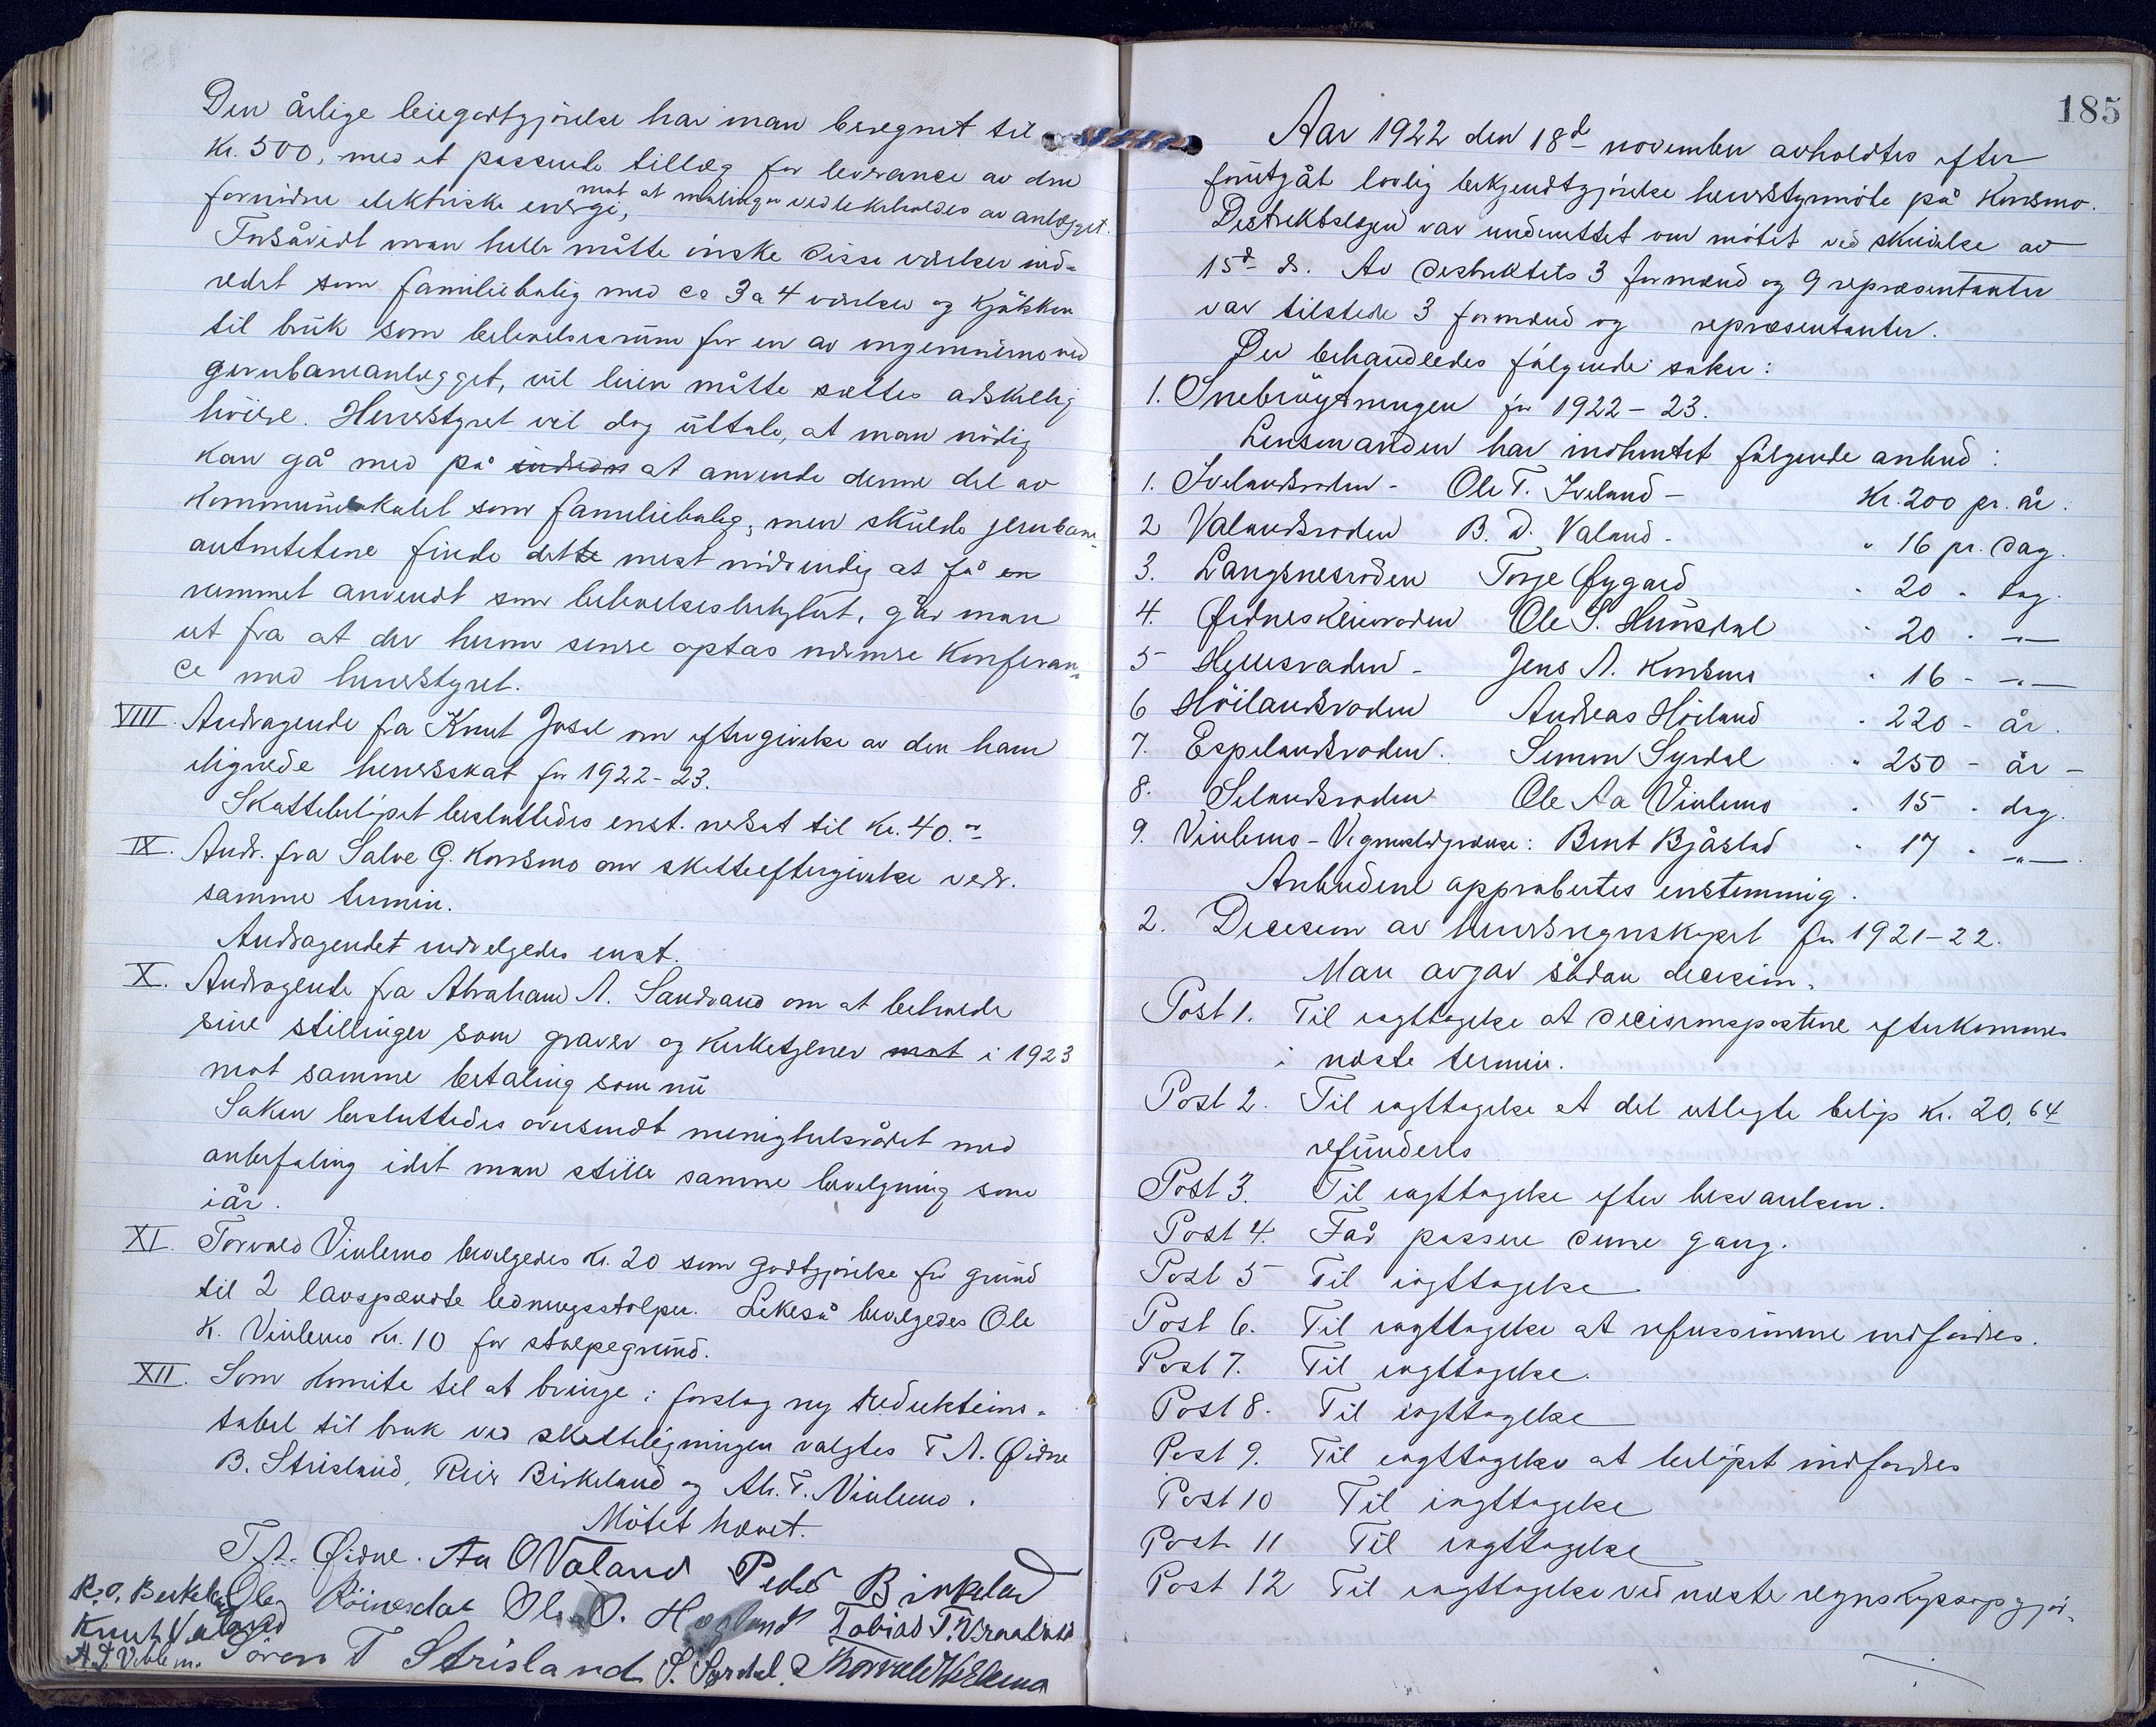 Den årlige leiegodtgjörelse har man beregnet til
Kr. 500, med et passende tillæg for leverance av den
fornødne elektriske energi, mot at malingen vedlikeholdes av anlægget.
Forsåvidt man heller måtte ønske disse værelser ind-
redet som familiebolig med ca 3 a 4 værelser og kjökken
til bruk som beboelsesrum for en av ingeniörerne ved
jernbaneanlægget, vil leien måtte sættes adskillig
höiere. Herredstyret vil dog uttale, at man nödig
kan gå med på indredn at anvende denne del av
kommunelokalet som familiebolig; men skulde jernbane-
autoritetene finde dette mest nödvendig at få en
rummet anvendt som beboelsesleilighet, går man
ut fra at der herom senere optas nærmere konferan-
ce med herredstyret.
VIII. Andragende fra Knut Josdal om eftergivelse av den ham
ilignede herredsskat for 1922-23.
Skattebelöpet besluttedes enst. nedsat til Kr. 40.00
IX. Andr. fra Salve G. Konsmo om skatteeftergivelse vedr.
samme termin.
Andragendet indvilgedes enst.
X. Andragende fra Abraham A. Sandvand om at beholde
sine stillinger som graver og kirketjener mot i 1923
mot samme betaling som nu
Saken besluttedes oversendt menighetsrådet med
anbefaling idet man stiller samme bevilgning som
iår.
XI. Torvald Vivlemo bevilgedes Kr. 20 som godtgjörelse for grund
til 2 lavspændte ledningsstolper. Likeså bevilgedes Ole
K. Vivlemo Kr. 10 for stolpegrund.
XII. Som komite til at bringe i forslag ny reduktions-
tabel til bruk ved skatteligningen valgtes T. A. Øidne
B. Strisland, Peder Birkeland og Ab. T. Vivlemo.
Mötet hævet.
T. A. Øidne. Aa O Valand Peder Birkeland
R. O. Birkeland Ole Röinesdal Ole O. Hægland Tobias T. Vraaland
Knut Valand
A. T. Vivlemo. Sören T Strisland S. Syrdal. Thorvald Vivlemo
185
Aar 1922 den 18d november avholdtes efter
forutgåt lovlig bekjendtgjörelse herredstyrmöte på Konsmo.
Distriktslægen var underrettet om mötet ved skrivelse av
15d ds. Av distriktets 3 formænd og 9 repræsentanter
var tilstede 3 formænd og repræsentanter.
Der behandledes fölgende saker:
1. Snebröytningen for 1922-23.
Lensmanden har indhentet fölgende anbud:
1. Ivelandsroden - Ole T. Iveland - Kr. 200 pr. år.
2 Valandsroden B. D. Valand - " 16 pr. dag.
3. Langsnesroden Torje Øygard " 20 " dag.
4. Øidneskleivroden Ole S. Hunsdal " 20 " -"-
5 Hellesroden - Jens A. Konsmo " 16 - -"-
6 Höilandsroden Andreas Höiland " 220 - år.
7. Espelandsroden. Simon Syrdal " 250 - år -
8. Selandsroden Ole Aa Vivlemo " 15 " dag.
9. Vivlemo - Vigmostadgrænse: Bent Bjåstad " 17 " -"-.
Anbudene approbertes enstemmig.
2. Decision av herredsregnskapet for 1921-22.
Man avgav sådan decision.
Post 1. Til iagttagelse at decisionspostene efterkommes
i næste termin.
Post 2. Til iagttagelse at det utlagte belöp Kr. 20,64
refunderes
Post 3. Til iagttagelse efter besvarelsen.
Post 4. Får passere denne gang.
Post 5 Til iagttagelse
Post 6. Til iagttagelse at refussionene indfordres.
Post 7. Til iagttagelse.
Post 8. Til iagttagelse
Post 9. Til iagttagelse at belöpet indfordres
Post 10 Til iagttagelse
Post 11 Til iagttagelse
Post 12 Til iagttagelse ved næste regnskapsopgjör.